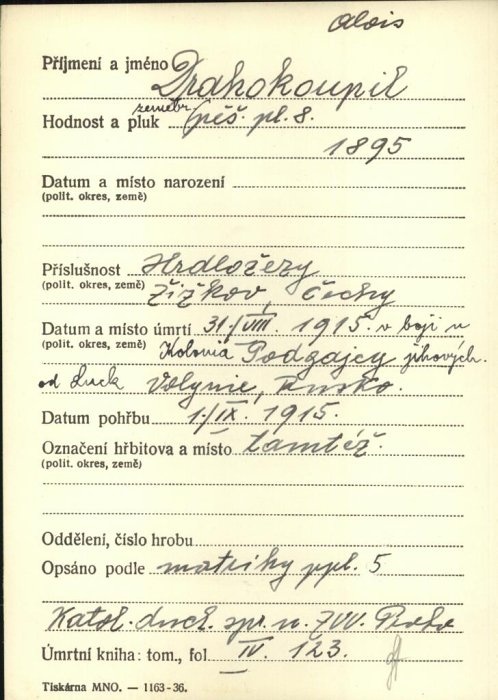 Alois
Příjmení a jméno Drahokoupil
zeměbr.
Hodnost a pluk pěš. pl. 8.
1895
Datum a místo narození
(polit. okres, země)
Příslušnost Hrdlořezy
(polit. okres, země) Žižkov, Čechy
Datum a místo úmrtí 31./VIII. 1915. v boji u
(polit. okres, země) Kolonia Podgajcy
od Luck Volynie, Rusko.
Datum pohřbu 1./IX. 1915.
Označení hřbitova a místo tamtéž.
(polit. okres, země)
Oddělení, číslo hrobu
Opsáno podle matriky ppl. 5
Katol. duch. spr. u ZVV. Praha
Úmrtní kniha: tom., fol. IV. 123.
Tiskárna MNO. — 1163-36.